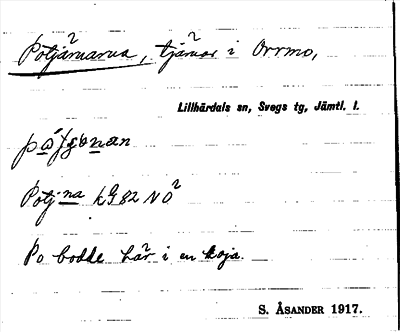 Potjärnarna, tjärnar i Orrmo,
Lillhärdals sn, Svegs tg, Jämtl. l.
Potj-na kg 82 NO²
Po bodde här i en koja.
S. ÅSANDER 1917.